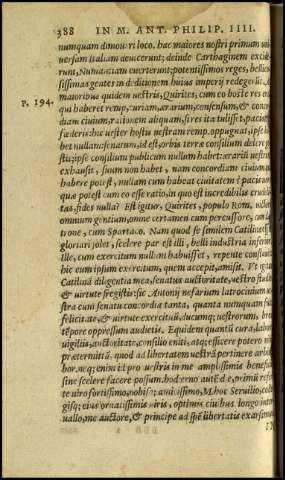 388 IN M. ANT. PHILIP. IIII.
numquam dimoueri loco. hac maiores nostri primum uni
uersam Italiam deuicerunt; deinde Carthaginem excide
runt, Numantiam euerterunt: potentissimos reges, bellico
sissimas gentes in deditionem huius imperij redegerunt. Ac
maioribus quidem uestris, Quirites, cum eo hoste res erat,
P. 194. qui haberet remp. curiam, ærarium, consensum, & concor
diam ciuium, rationem aliquam, si res ita tulisset, pacis &
fœderis: hic uester hostis uestram remp. oppugnat, ipse ha
bet nullam: senatum, id est, orbis terræ consilium delere ge
stit; ipse consilium publicum nullum habet: ærarium uestrũ
exhausit, suum non habet. nam concordiam ciuium qui
habere potest, nullam cum habeat ciuitatem? pacis uero
quæ potest cum eo esse ratio, in quo est incredibilis crudeli
tas, fides nulla? Est igitur, Quirites, populo Rom. uictori
omnium gentium, omne certamen cum percussore, cum la
trone, cum Spartaco. Nam quod se similem Catilinæ esse
gloriari solet, scelere par est illi, belli industria inferior.
ille, cum exercitum nullum habuisset, repente conflauit:
hic eum ipsum exercitum, quem accepit, amisit. Vt igitur
Catilinã diligentia mea, senatus auctoritate, uestro studio,
& uirtute fregistis: sic Antonij nefarium latrocinium ue
stra cum senatu concordia tanta, quanta numquam fuit,
felicitate, & uirtute exercituũ, ducumq; uestrorum, breui
tẽpore oppressum audietis. Equidem quantũ cura, labore,
uigilijs, auctoritate, consilio eniti, atq; efficere potero nihil
prætermittã, quod ad libertatem uestrã pertinere arbitra
bor. neq; enim id pro uestris in me amplissimis beneficijs
sine scelere facere possum. hodierno autẽ die, primũ referen
te uiro fortissimo, uobisq; amicissimo, M. hoc Seruilio, colle
gisq; eius ornatissimis uiris, optimis ciuibus longo inter
uallo, me auctore, & principe ad spẽ libertatis exarsimus.